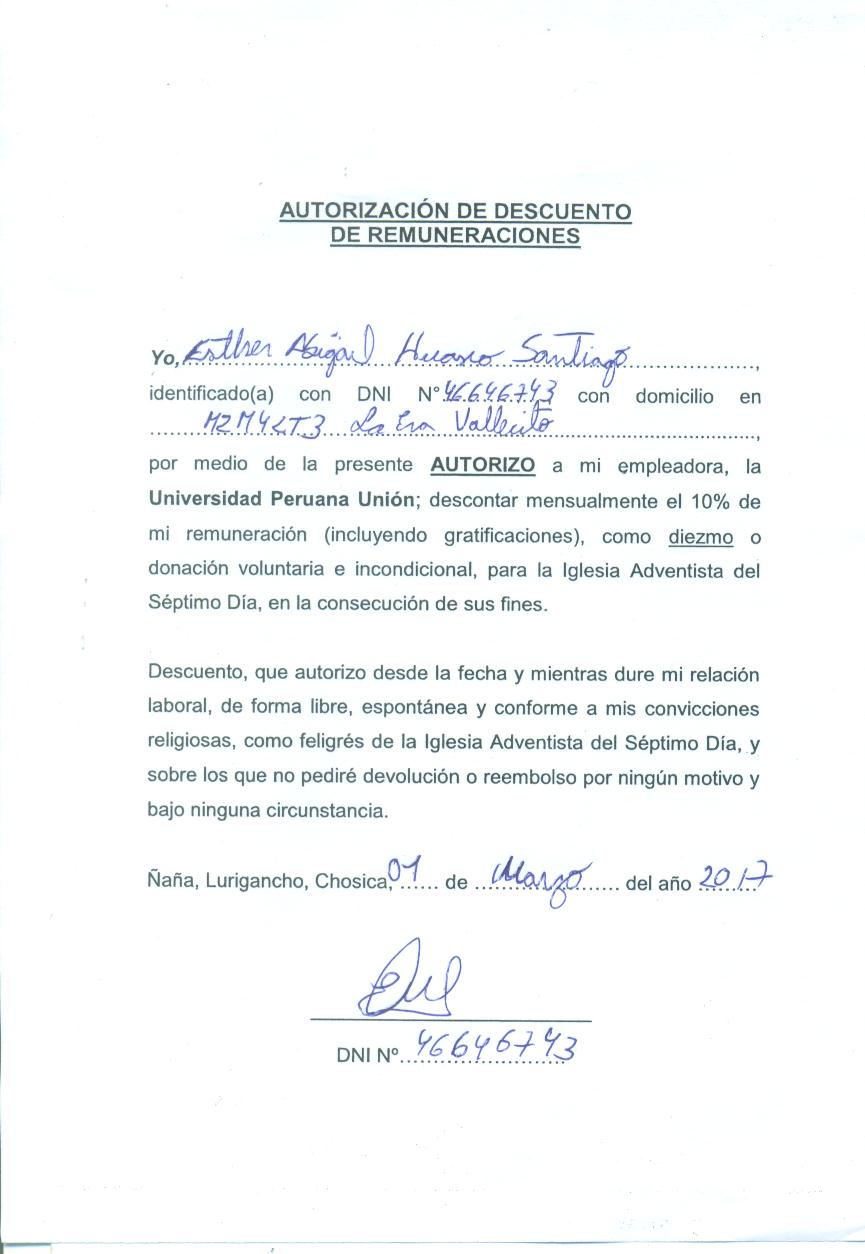 AUTORIZACIÓN DE DESCUENTO
DE REMUNERACIONES
Yo, Esther Abigail Huasco Santiago,
identificado(a) con DNI N° 46646743 con domicilio en
MZ M4 LT3 La Era Vallecito,
por medio de la presente AUTORIZO a mi empleadora, la
Universidad Peruana Unión; descontar mensualmente el 10% de
mi remuneración (incluyendo gratificaciones), como diezmo o
donación voluntaria e incondicional, para la Iglesia Adventista del
Séptimo Día, en la consecución de sus fines.
Descuento, que autorizo desde la fecha y mientras dure mi relación
laboral, de forma libre, espontánea y conforme a mis convicciones
religiosas, como feligrés de la Iglesia Adventista del Séptimo Día, y
sobre los que no pediré devolución o reembolso por ningún motivo y
bajo ninguna circunstancia.
Ñaña, Lurigancho, Chosica, 01 de Marzo del año 2017
DNI Nº 46646743